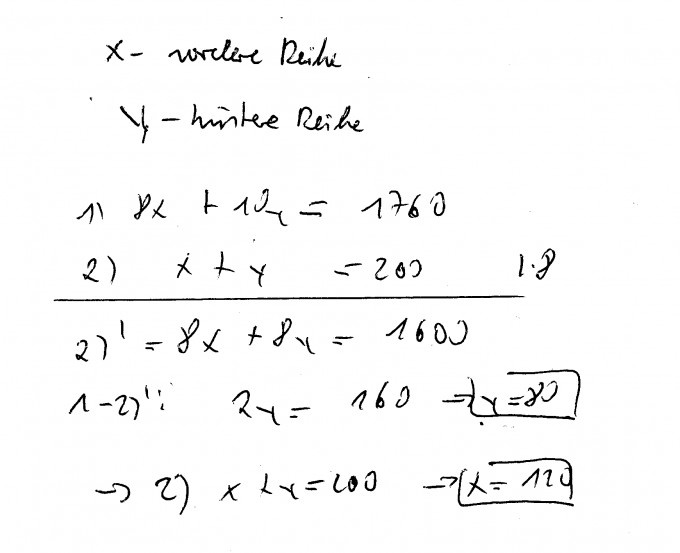 x - vordere Reihe
y - hintere Reihe
1) 8x + 10y = 1760
2) x + y = 200 | · 8
2)' = 8x + 8y = 1600
1 - 2)': 2y = 160 → y = 80
→ 2) x + y = 200 → x = 120